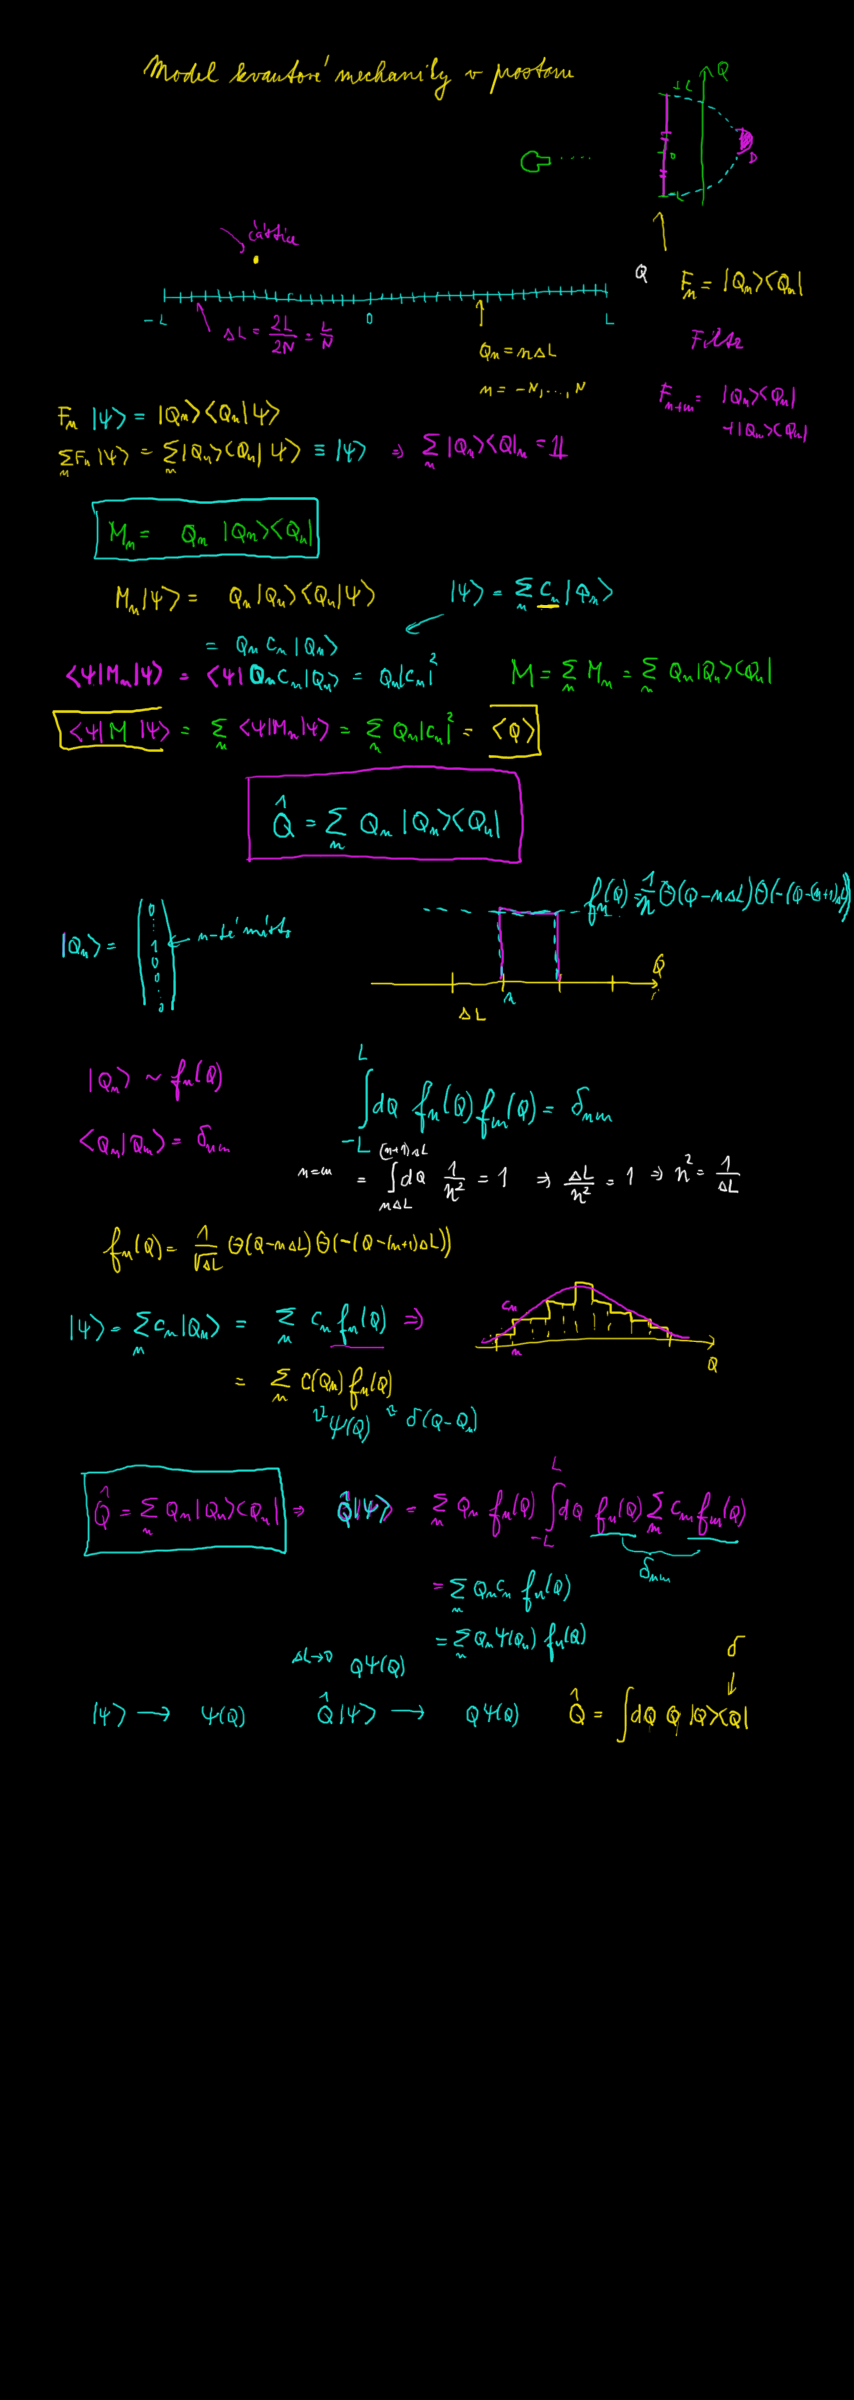 Model kvantové mechaniky v prostoru
+L
Q
0
D
-L
částice
-L
0
L
ΔL = 2L/2N = L/N
Q_n = nΔL
n = -N, ..., N
Q
F_n = |Q_n><Q_n|
Filtr
F_{n+m} = |Q_n><Q_n|
+|Q_m><Q_m|
F_n |ψ> = |Q_n><Q_n|ψ>
Σ_n F_n |ψ> = Σ_n |Q_n><Q_n|ψ> ≡ |ψ> ⇒ Σ_n |Q_n><Q|_n = 1
M_n = Q_n |Q_n><Q_n|
M_n|ψ> = Q_n|Q_n><Q_n|ψ>
|ψ> = Σ_n c_n |Q_n>
= Q_n c_n |Q_n>
<ψ|M_n|ψ> = <ψ|Q_n c_n|Q_n> = Q_n|c_n|²
M = Σ_n M_n = Σ_n Q_n|Q_n><Q_n|
<ψ|M|ψ> = Σ_n <ψ|M_n|ψ> = Σ_n Q_n|c_n|² = <Q>
Q̂ = Σ_n Q_n |Q_n><Q_n|
f_n(Q) = 1/n Θ(Q-nΔL)Θ(-(Q-(n+1)ΔL))
|Q_n> = (0 ⋮ 1 0 0 ⋮ 0) ← n-té místo
Q
n
ΔL
|Q_n> ~ f_n(Q)
∫_{-L}^{L} dQ f_n(Q) f_m(Q) = δ_{nm}
<Q_n|Q_m> = δ_{nm}
n=m = ∫_{nΔL}^{(n+1)ΔL} dQ 1/n² = 1 ⇒ ΔL/n² = 1 ⇒ n² = 1/ΔL
f_n(Q) = 1/√ΔL Θ(Q-nΔL)Θ(-(Q-(n+1)ΔL))
|ψ> = Σ_n c_n|Q_n> = Σ_n c_n f_n(Q) ⇒
c_n
n
Q
= Σ_n c(Q_n) f_n(Q)
ψ(Q) δ(Q-Q_n)
Q̂ = Σ_n Q_n|Q_n><Q_n| ⇒ Q̂|ψ> = Σ_n Q_n f_n(Q) ∫_{-L}^{L} dQ f_n(Q) Σ_m c_m f_m(Q)
δ_{nm}
= Σ_n Q_n c_n f_n(Q)
= Σ_n Q_n ψ(Q_n) f_n(Q)
ΔL→0 Qψ(Q)
δ
|ψ> → ψ(Q) Q̂|ψ> → Qψ(Q) Q̂ = ∫dQ Q |Q><Q|